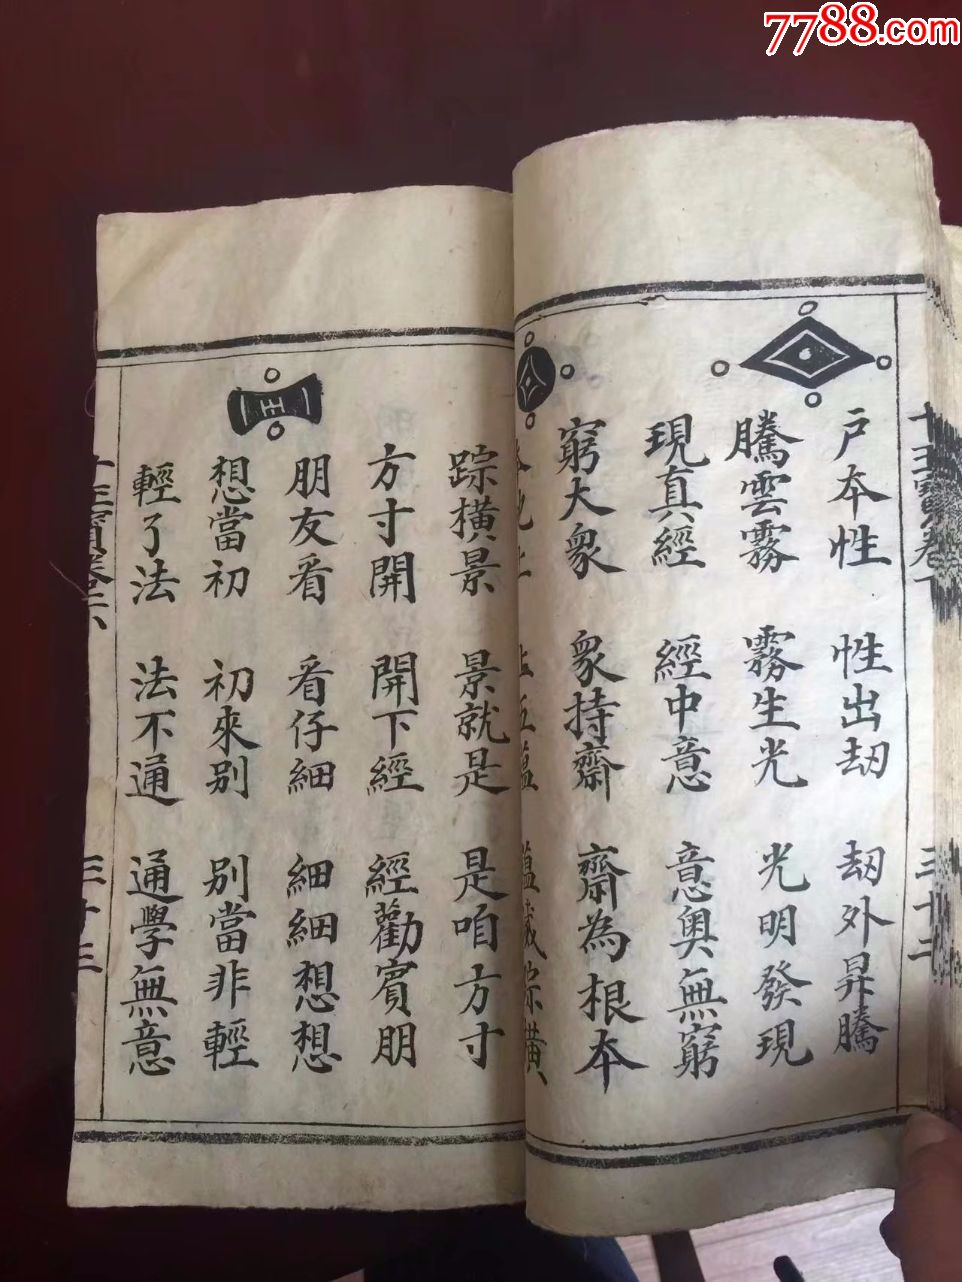 7788.com
戶本性 性出刼 刼外昇騰
騰雲霧 霧生光 光明發現
現真經 經中意 意奧無窮
窮大衆 衆持齋 齋為根本
踪橫景 景就是 是咱方寸
方寸開 開下經 經勸賓朋
朋友看 看仔細 細細想想
想當初 初來别 别當非輕
輕了法 法不通 通學無意
王
三十二
三十三